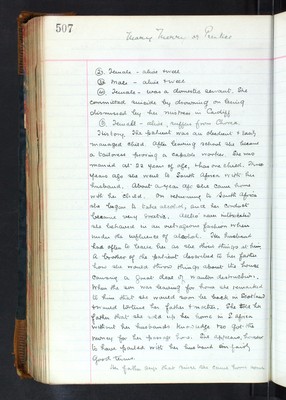 507
② Female - alive & well
③ Male - alive & well
④ Female - was a domestic servant. She
committed suicide by drowning on being
dismissed by her mistress in Cardiff
⑤ Female - alive, suffers from Chorea.
History. The patient was an obedient & easily
managed child. After leaving school she became
a proving a capable worker. She was
married at 22 years of age, has one child. Three
years ago she went to South Africa with her
husband. About a year ago she came home
with her child. On returning to South Africa
she began to take alcohol, and her conduct
became very erratic. When intoxicated
she behaved in an outrageous fashion when
under the influence of alcohol. Her husband
had often to leave her as she threw things at him.
A brother of the patient described to her father
how she would throw things about the house
causing a great deal of wanton destruction.
When the son was leaving for home she remarked
to him that she would soon be back in Scotland
& would her father & mother. She told her
father that she sold up her home in S Africa
without her husband's knowledge & so got the
money for her passage home. She appears, however
to have parted with her husband on fairly
good terms.
Her father says that since she came home